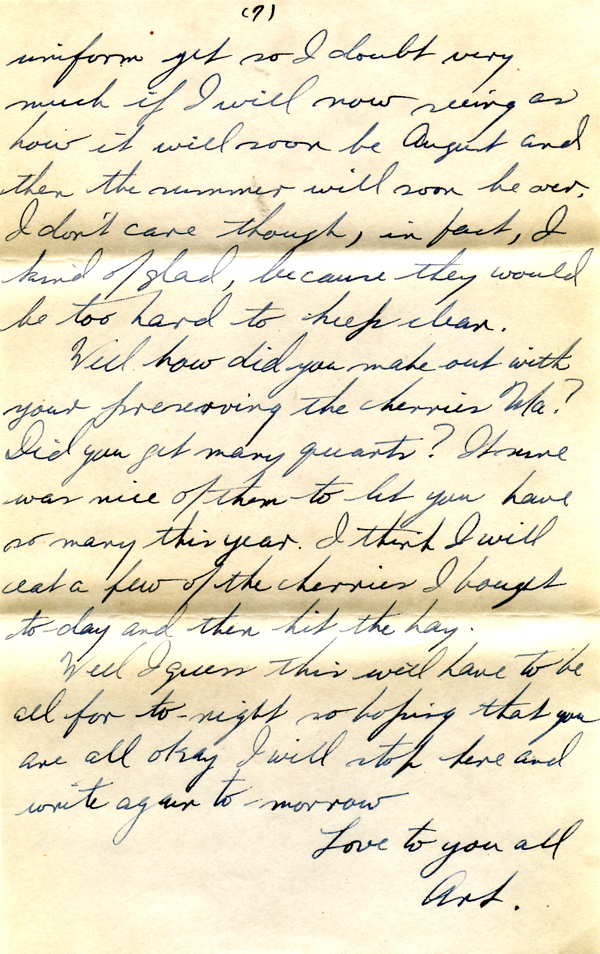 (7)
uniform yet so I doubt very
much if I will now seeing as
how it will soon be August and
then the summer will soon be over.
I don't care though, in fact, I
kind of glad, because they would
be too hard to keep clean.
Well how did you make out with
your preserving the cherries Ma?
Did you get many quarts? It sure
was nice of them to let you have
so many this year. I think I will
eat a few of the cherries I bought
to-day and then hit the hay.
Well I guess this will have to be
all for to-night so hoping that you
are all okay I will stop here and
write again to-morrow
Love to you all
Art.